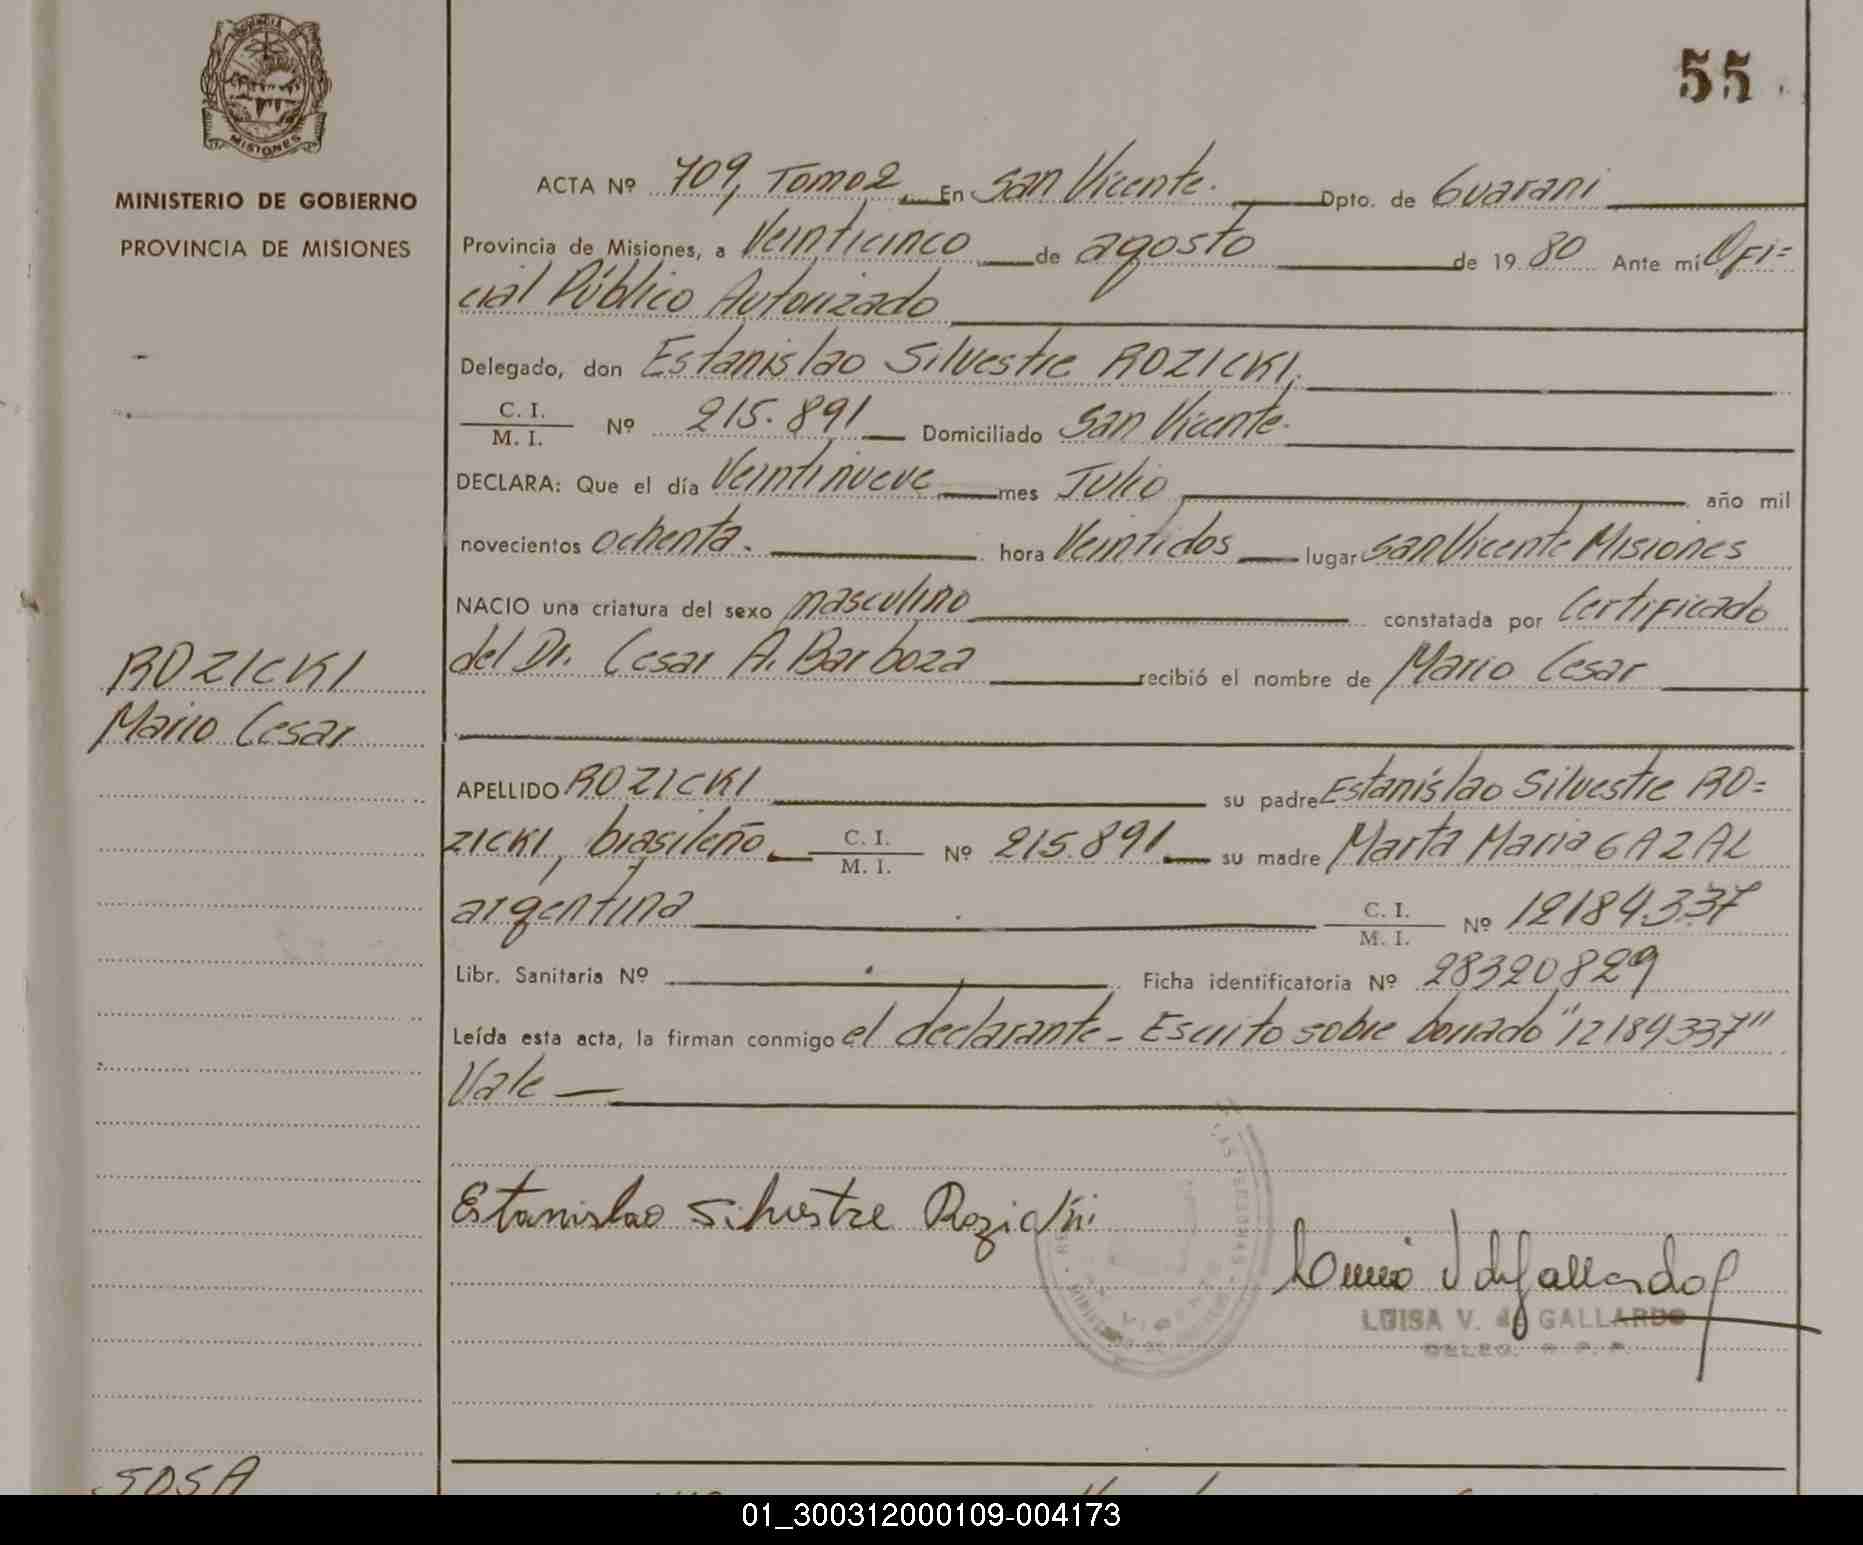 PROVINCIA
MISIONES
MINISTERIO DE GOBIERNO
PROVINCIA DE MISIONES
55
ACTA Nº 709, Tomo 2 En San Vicente. Dpto. de Guarani
Provincia de Misiones, a Veinticinco de agosto de 1980 Ante mí Ofi=
cial Público Autorizado
Delegado, don Estanislao Silvestre ROZICKI,
C. I.
M. I. Nº 215.891 Domiciliado San Vicente.
DECLARA: Que el día Veintinueve mes Julio año mil
novecientos ochenta. hora Veintidos lugar San Vicente Misiones
NACIO una criatura del sexo masculino constatada por Certificado
del Dr. Cesar A. Barboza recibió el nombre de Mario Cesar
ROZICKI
Mario Cesar
APELLIDO ROZICKI su padre Estanislao Silvestre RO=
ZICKI, brasileño C. I. M. I. Nº 215.891 su madre Marta Maria GAZAL
argentina C. I. M. I. Nº 12184337
Libr. Sanitaria Nº Ficha identificatoria Nº 28320829
Leída esta acta, la firman conmigo el declarante - Escrito sobre borrado "12184337"
Vale —
Estanislao Silvestre Rozicki
LUISA V. de GALLARDO
DELEG.
SOSA
01_300312000109-004173